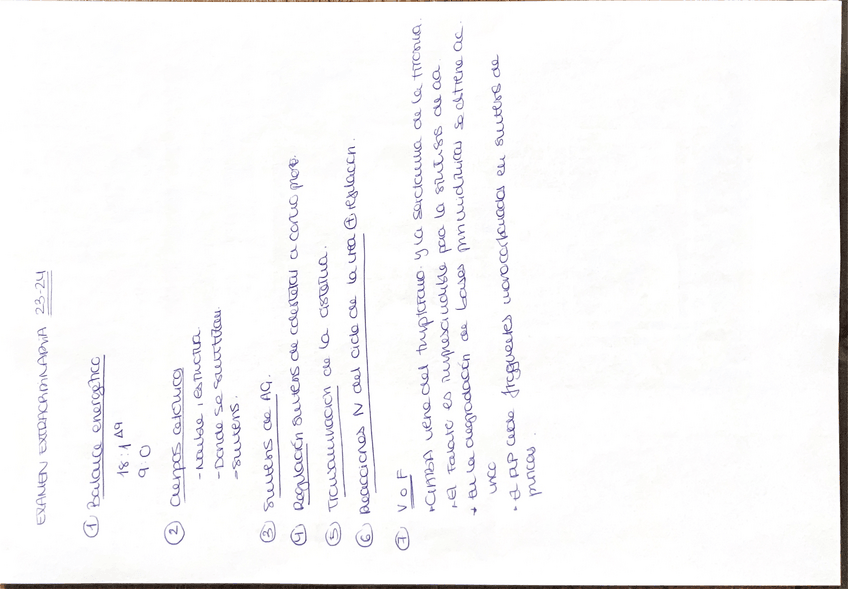 EXAMEN EXTRAORDINARIA 23-24
① Balance energético
18:1 Δ9
9:0
② Cuerpos cetónicos
- Nombre, estructura
- Donde se sintetizan
- Síntesis.
③ Síntesis de AG.
④ Regulación síntesis de colesterol a corto plazo.
⑤ Transaminación de la cisteína.
⑥ Reacciones N del ciclo de la urea ⊕ regulación.
⑦ V o F
· GABA viene del triptófano y la serotonina de la tirosina.
· El Folato es imprescindible para la síntesis de aa
* En la degradación de bases pirimidínicas se obtiene ác.
úrico
· el PLP cede fragmentos monocarbonados en síntesis de
purinas.